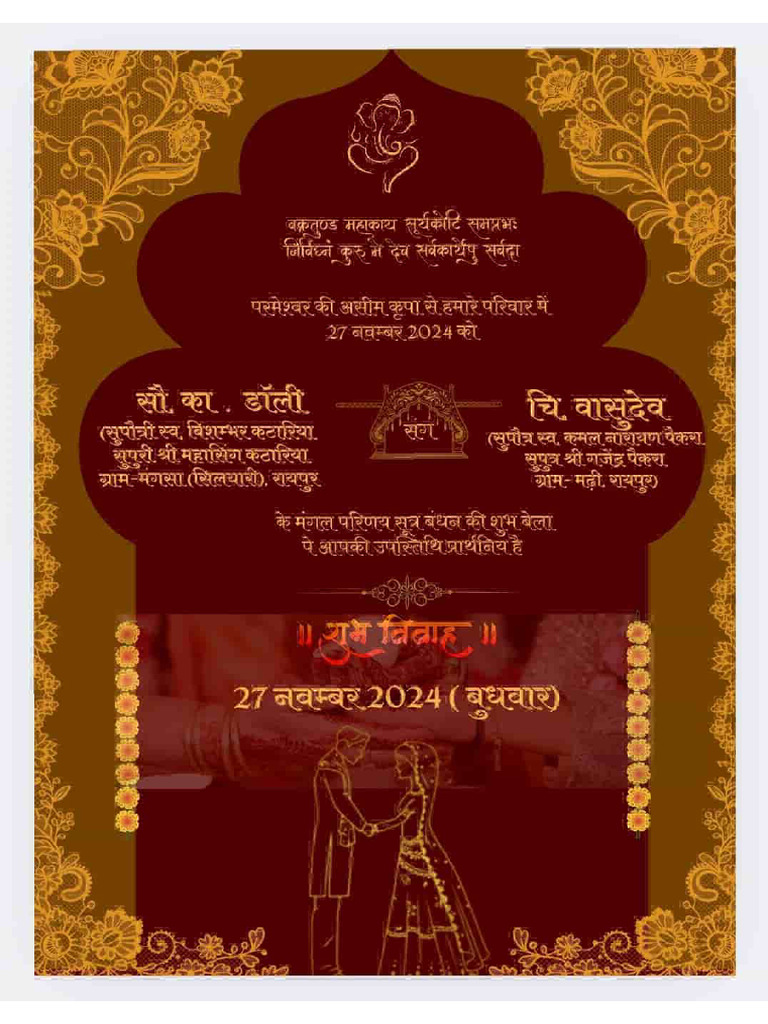 वक्रतुण्ड महाकाय सूर्यकोटि समप्रभः
निर्विघ्नं कुरु मे देव सर्वकार्येषु सर्वदा
परमेश्वर की असीम कृपा से हमारे परिवार में
27 नवम्बर 2024 को
सौ. का . डॉली
(सुपौत्री स्व. बिशम्भर कटारिया
सुपुरी श्री महासिंग कटारिया
ग्राम-मंगसा (सिलयारी), रायपुर
संग
चि. वासुदेव
(सुपौत्र स्व. कमल नारायण पैकरा
सुपुत्र श्री गजेंद्र पैकरा
ग्राम- मढ़ी, रायपुर)
के मंगल परिणय सूत्र बंधन की शुभ बेला
पे आपकी उपस्तिथि प्रार्थनिय है
॥ शुभ विवाह ॥
27 नवम्बर 2024 ( बुधवार)